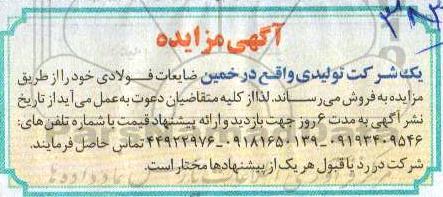 آگهی مزایده
یک شرکت تولیدی واقع در خمین ضایعات فولادی خود را از طریق
مزایده به فروش می رساند. لذا از کلیه متقاضیان دعوت به عمل می آید از تاریخ
نشر آگهی به مدت ۶ روز جهت بازدید و ارائه پیشنهاد قیمت با شماره تلفن های:
۰۹۱۹۳۴۰۹۵۴۶_۰۹۱۸۱۶۵۰۱۳۹_۴۴۹۲۲۹۷۶ تماس حاصل فرمایند.
شرکت در رد یا قبول هر یک از پیشنهادها مختار است.